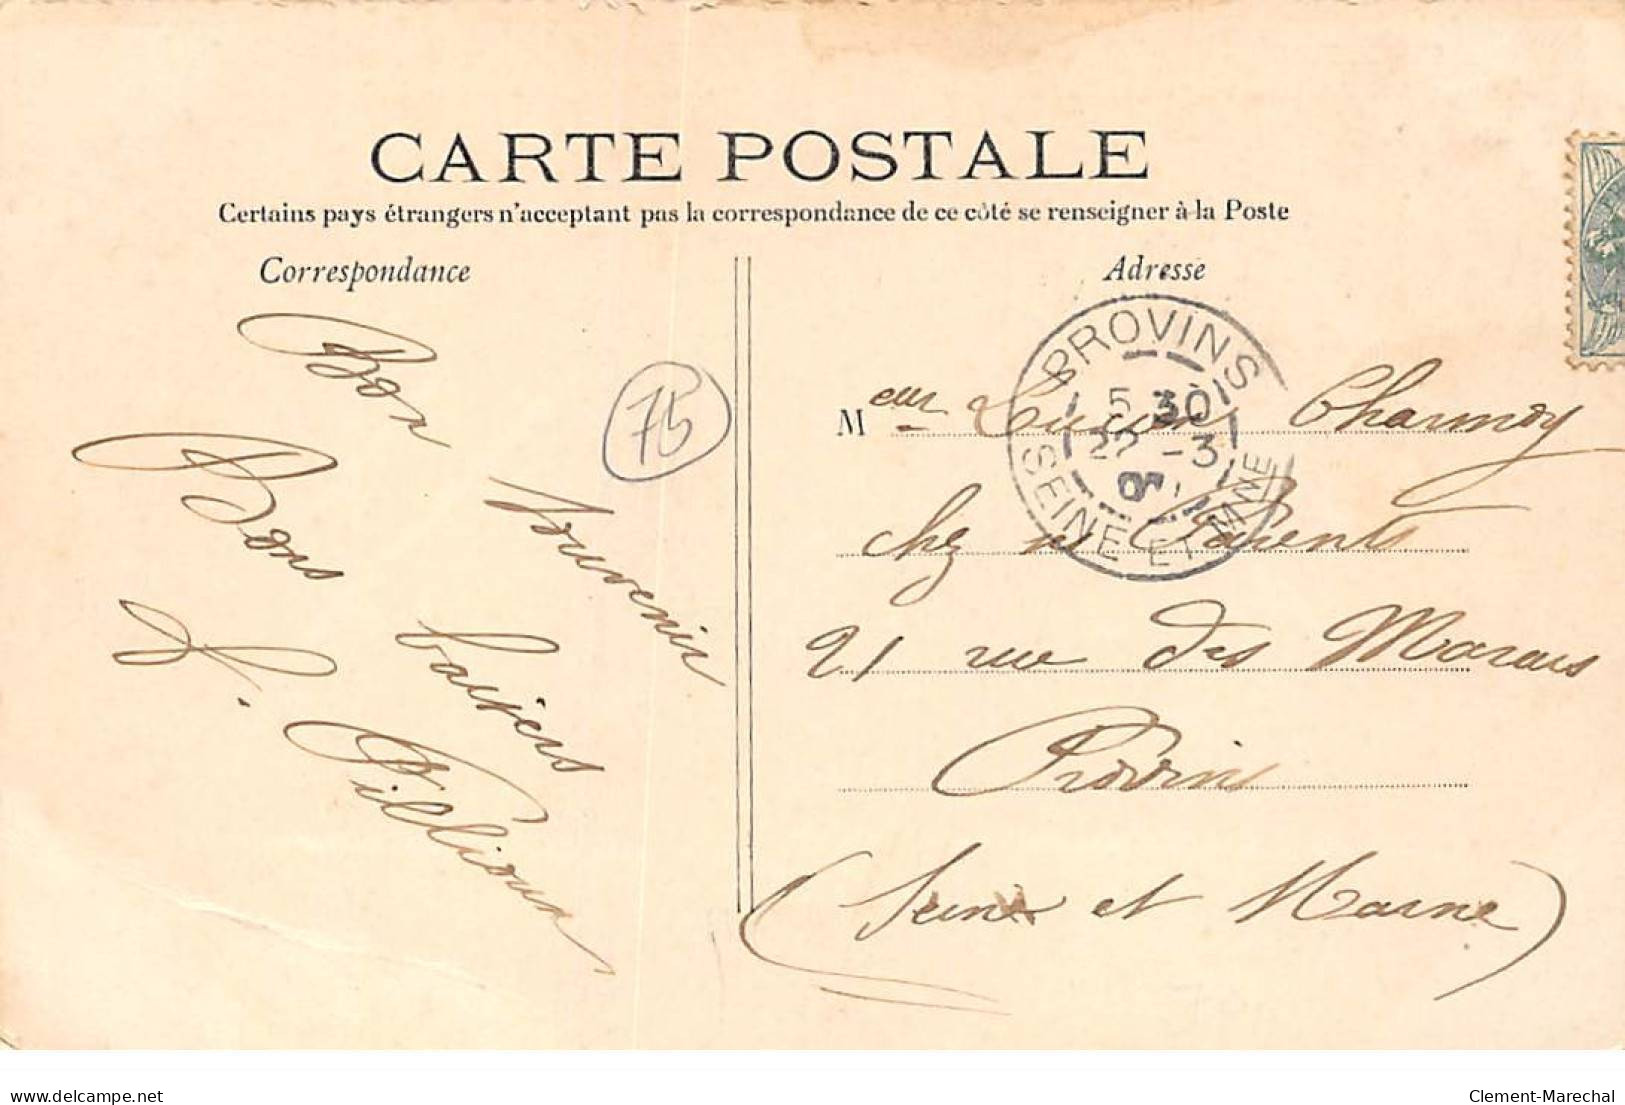 CARTE POSTALE
Certains pays étrangers n'acceptant pas la correspondance de ce côté se renseigner à la Poste
Correspondance
Bon Souvenir
Bons baisers
75
Adresse
PROVINS
5 30
22 -3
SEINE ET MNE
Meur Lucien Charmoy
chez ses Parents
21 rue des Marais
Provins
(Seine et Marne)
delcampe.net
Clement-Marechal